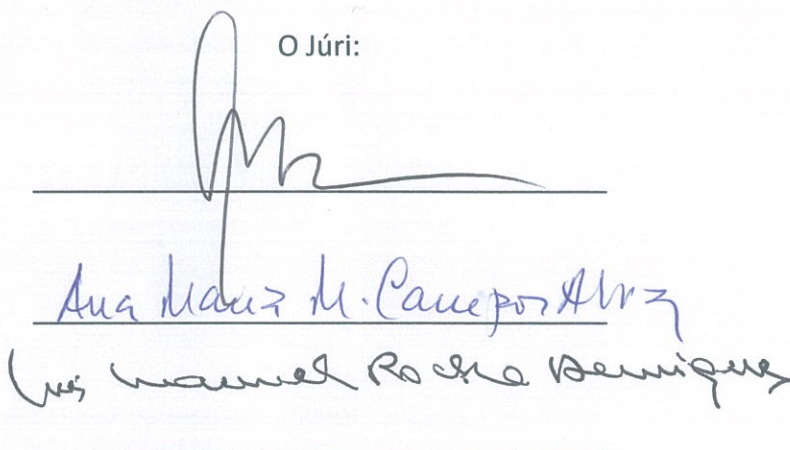 O Júri:
Ana Maria M. Campos Alves
Luís Manuel Rocha Henriques